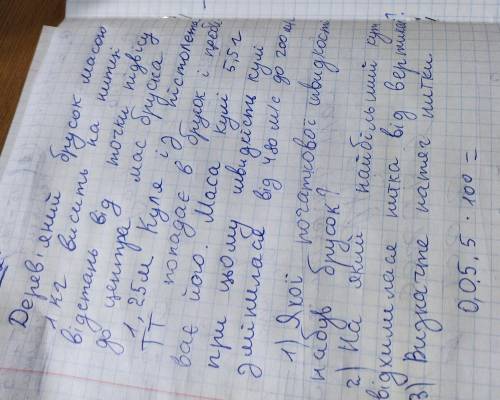 Дерев'яний брусок масою
1 кг висить на нитці
відстань від точки підвісу
до центра мас бруска
1,25м Куля із пістолета
ТТ попадає в брусок і проби
ває його. Маса кулі 5,5 г
при цьому швидкість кулі
змінилась від 480 м/с до 200 м/с.
1) Якої початкової швидкості
набув брусок?
2) На який найбільший кут
відхилилася нитка від вертикалі?
3) Визначте натяг нитки
0,05.5 · 100 =